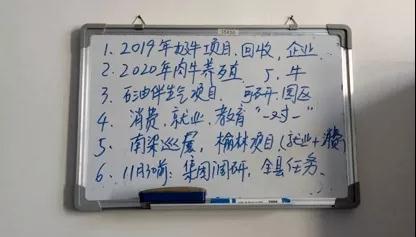 1. 2019年奶牛项目.回收,企业
2. 2020年肉牛养殖 5.牛
3. 石油伴生气项目. 园区
4. 消费.就业.教育"一对一"
5. 南梁巡展,榆林项目(就业+消费)
6. 11月30前:集团调研,全县任务.